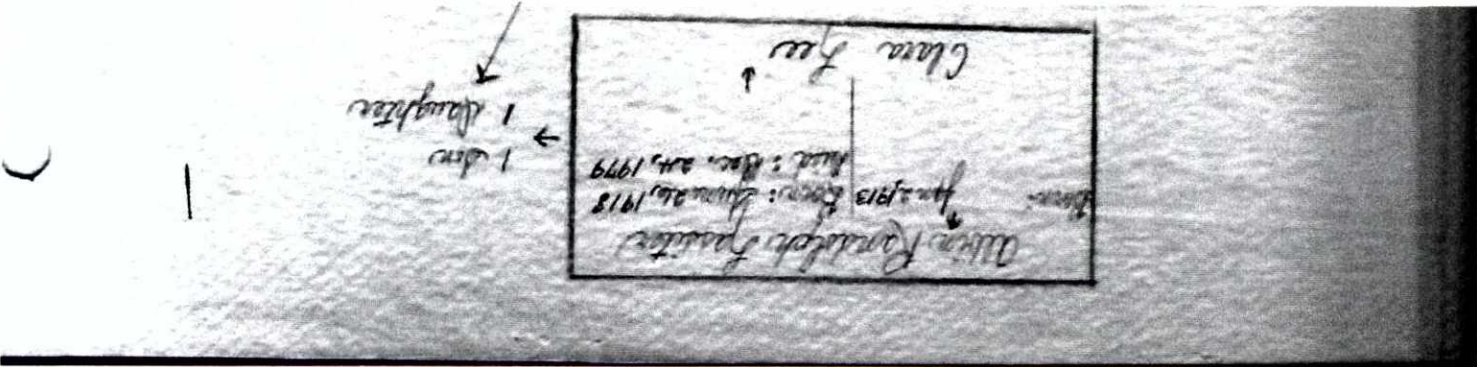 Alvin Randolph Lassiter
Born: Jan 2, 1913 Born: June 26, 1918
Died: Dec. 24, 1979
Clara Lee
1 Son
1 Daughter